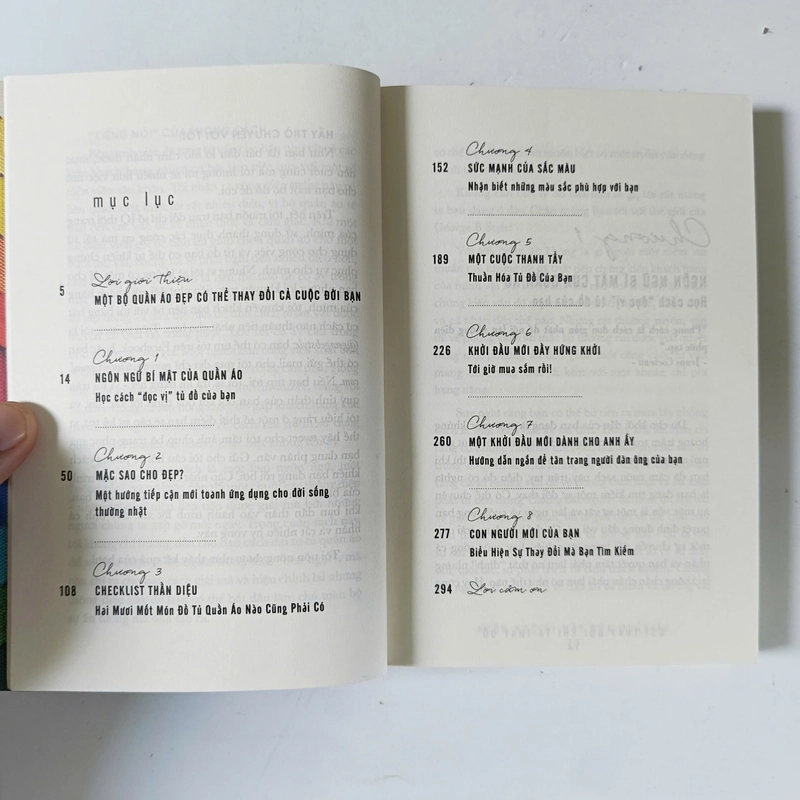 mục lục
Lời giới thiệu
5 MỘT BỘ QUẦN ÁO ĐẸP CÓ THỂ THAY ĐỔI CẢ CUỘC ĐỜI BẠN
Chương 1
14 NGÔN NGỮ BÍ MẬT CỦA QUẦN ÁO
Học cách “đọc vị” tủ đồ của bạn
Chương 2
50 MẶC SAO CHO ĐẸP?
Một hướng tiếp cận mới toanh ứng dụng cho đời sống
thường nhật
Chương 3
108 CHECKLIST THẦN DIỆU
Hai Mươi Mốt Món Đồ Tủ Quần Áo Nào Cũng Phải Có
Chương 4
152 SỨC MẠNH CỦA SẮC MÀU
Nhận biết những màu sắc phù hợp với bạn
Chương 5
189 MỘT CUỘC THANH TẨY
Thuần Hóa Tủ Đồ Của Bạn
Chương 6
226 KHỞI ĐẦU MỚI ĐẦY HỨNG KHỞI
Tới giờ mua sắm rồi!
Chương 7
260 MỘT KHỞI ĐẦU MỚI DÀNH CHO ANH ẤY
Hướng dẫn ngắn để tân trang người đàn ông của bạn
Chương 8
277 CON NGƯỜI MỚI CỦA BẠN
Biểu Hiện Sự Thay Đổi Mà Bạn Tìm Kiếm
294 Lời cảm ơn